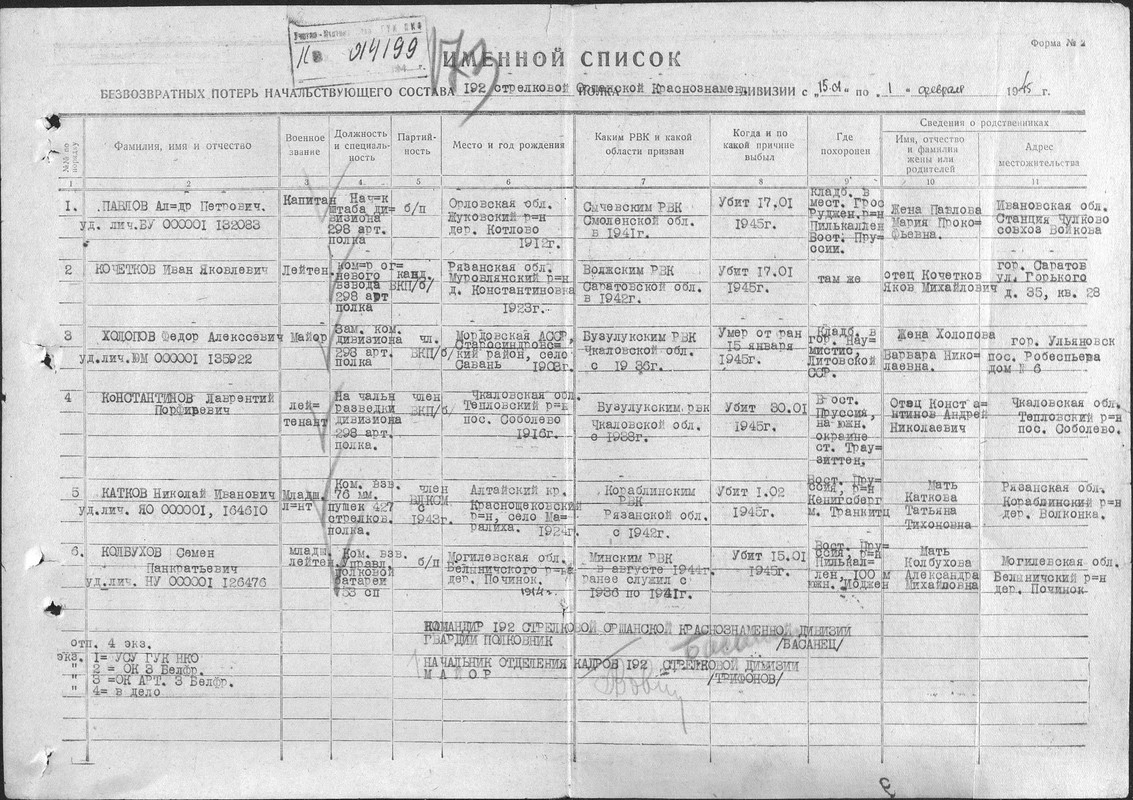 Форма № 2
014199
173
ИМЕННОЙ СПИСОК
БЕЗВОЗВРАТНЫХ ПОТЕРЬ НАЧАЛЬСТВУЮЩЕГО СОСТАВА 192 стрелковой Оршанской Краснознамен. ДИВИЗИИ с „15.01" по „1" февраля 1945 г.
№№ по порядку
Фамилия, имя и отчество
Военное звание
Должность и специаль-
ность
Партий-
ность
Место и год рождения
Каким РВК и какой
области призван
Когда и по
какой причине
выбыл
Где
похоронен
Сведения о родственниках
Имя, отчество
и фамилия
жены или
родителей
Адрес
местожительства
1 2 3 4 5 6 7 8 9 10 11
1.
ПАВЛОВ Ал=др Петрович.
уд. лич.ВУ 000001 132083
Капитан
Нач=к
штаба ди-
визиона
298 арт.
полка
б/п
Орловская обл.
Жуковский р=н
дер. Котлово
1912г.
Сычевским РВК
Смоленской обл.
в 1941г.
Убит 17.01
1945г.
кладб. в
мест. Грос
Руджен.р=н
Пилькаллен
Вост. Пру=
ссии.
Жена Павлова
Мария Проко=
фьевна.
Ивановская обл.
Станция Чулково
совхоз Войкова
2
КОЧЕТКОВ Иван Яковлевич
Лейтен.
ком=р ог=
невого
взвода
298 арт
полка
канд.
ВКП/б/
Рязанская обл.
Муровлянский р=н
д. Константиновка
1923г.
Волжским РВК
Саратовской обл.
в 1942г.
Убит 17.01
1945г.
там же
отец Кочетков
Яков Михайлович
гор. Саратов
ул. Горького
д. 35, кв. 28
3
ХОЛОПОВ Федор Алексеевич
уд.лич.ЮМ 000001 135922
Майор
Зам. ком.
дивизиона
298 арт.
полка
чл.
ВКП/б/
Мордовская АССР,
Старосиндровс=
кий район, село
Савань 1908г.
Бузулукским РВК
Чкаловской обл.
с 1936г.
Умер от ран
15 января
1945г.
Кладб. в
гор. Нау=
мистис,
Литовской
ССР.
Жена Холопова
Варвара Нико=
лаевна.
гор. Ульяновск
пос. Робеспьера
дом № 6
4
КОНСТАНТИНОВ Лаврентий
Порфиревич
лей=
тенант
На чальн
разведки
дивизиона
298 арт.
полка.
член
ВКП/б/
Чкаловская обл.
Тепловский р=н
пос. Соболево
1916г.
Бузулукским рвк
Чкаловской обл.
с 1938г.
Убит 30.01
1945г.
В ост.
Пруссия,
на южн.
окраине
ст. Трау=
зиттен,
Отец Конста=
нтинов Андрей
Николаевич
Чкаловская обл.
Тепловский р=н
пос. Соболево.
5
КАТКОВ Николай Иванович
уд.лич. ЯО 000001, 164610
Младш.
л=нт
Ком. взв.
76 мм.
пушек 427
стрелков.
полка.
член
ВЛКСМ
с
1943г.
Алтайский кр.
Краснощековский
р=н, село Ма=
ралиха. 1924г.
Кораблинским
РВК
Рязанской обл.
с 1942г.
Убит 1.02
1945г.
Вост. Пру=
ссия, р=н
Кенигсберг
м. Транкитц
Мать
Каткова
Татьяна
Тихоновна
Рязанская обл.
Кораблинский р=н
дер. Волконка.
6.
КОЛБУХОВ Семен
Панкратьевич
уд.лич. НУ 000001 126476
младш.
лейтен
Ком. взв.
управл.
полковой
батареи
753 сп
б/п
Могилевская обл.
Белыничского р=на
дер. Починок.
1914г.
Минским РВК
в августе 1944г.
ранее служил с
1936 по 1941г.
Убит 15.01
1945г.
Вост. Пру=
ссия, р=н
Пилькал=
лен, 100 м
южн. Йоджен
Мать
Колбухова
Александра
Михайловна
Могилевская обл.
Белыничский р=н
дер. Починок
КОМАНДИР 192 СТРЕЛКОВОЙ ОРШАНСКОЙ КРАСНОЗНАМЕННОЙ ДИВИЗИИ
ГВАРДИИ ПОЛКОВНИК /БАСАНЕЦ/
НАЧАЛЬНИК ОТДЕЛЕНИЯ КАДРОВ 192 СТРЕЛКОВОЙ ДИВИЗИИ
МАЙОР /ТРИФОНОВ/
отп. 4 экз.
экз. 1= УСУ ГУК НКО
" 2 = ОК 3 Белфр.
" 3 =ОК АРТ. 3 Белфр.
" 4= в дело